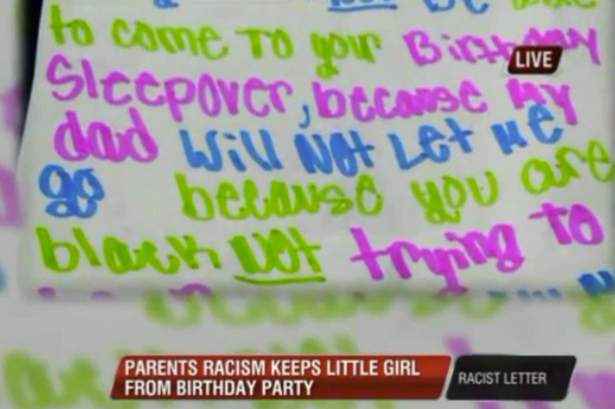 NOT be
to come TO your Birthday
LIVE
Sleepover, because my
dad Will Not Let me
go because you are
black NOT trying to
PARENTS RACISM KEEPS LITTLE GIRL
FROM BIRTHDAY PARTY
RACIST LETTER